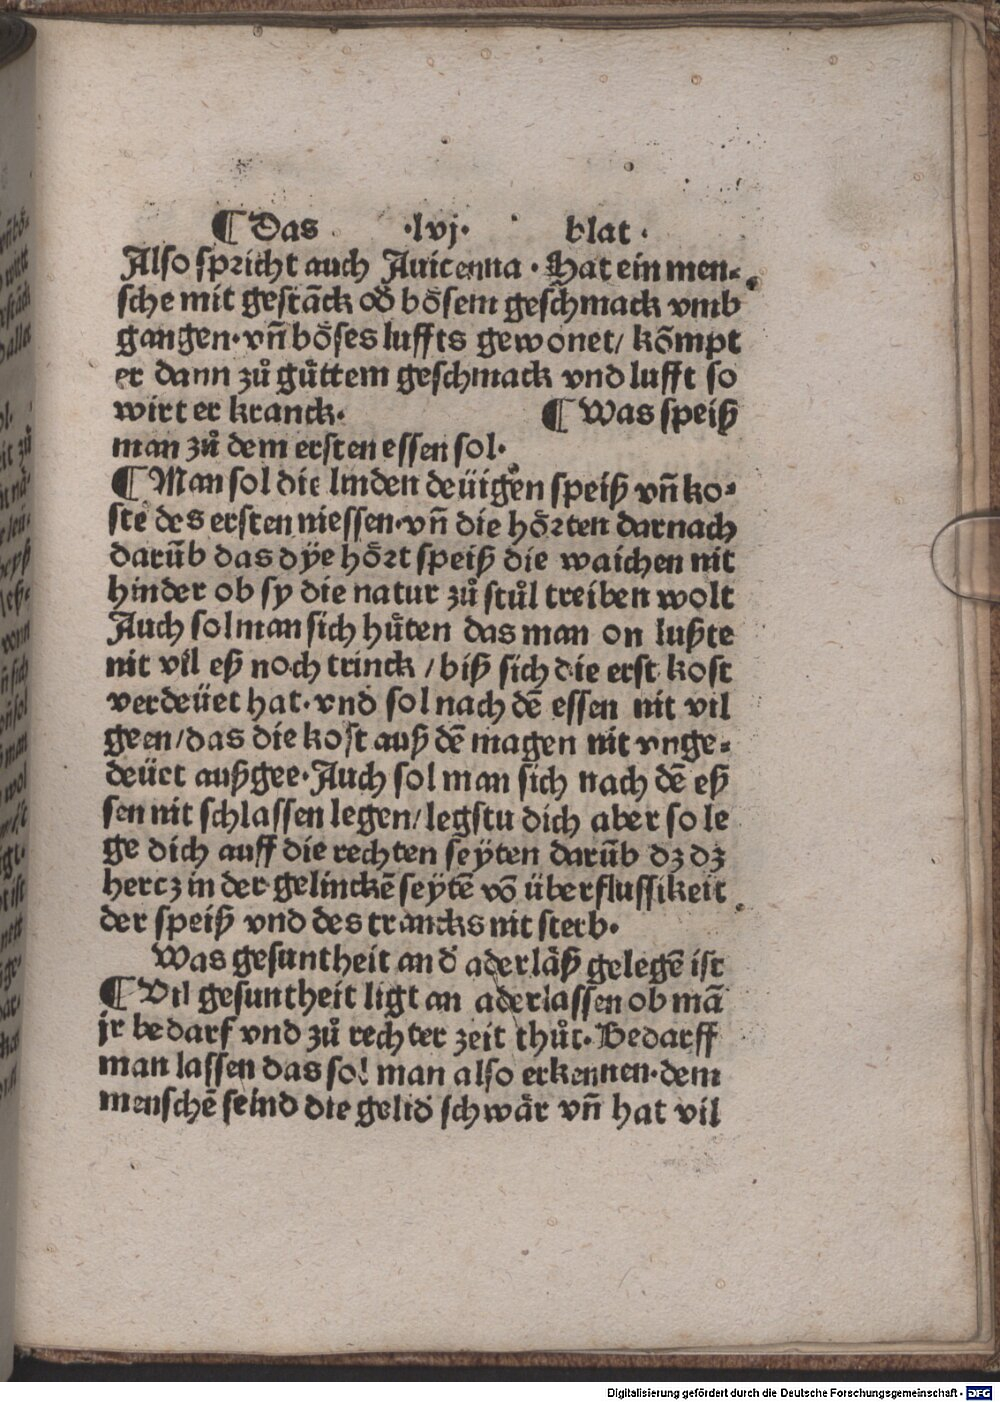 ¶ Das ·lvj· blat ·
Also spricht auch Auicenna · Hat ein men⸗
sche mit gestāck oď bösem geschmack vmb
gangen·vn̄ böses luffts gewonet/ kōmpt
er dann zů gůttem geschmack vnd lufft so
wirt er kranck· ¶ Was speiß
man zů dem ersten essen sol·
¶ Man sol die linden deüigen speiß vn̄ ko⸗
ste des ersten niessen·vn̄ die hörten darnach
darūb das dÿe hört speiß die waichen nit
hinder ob sy die natur zů stůl treiben wolt
Auch sol man sich hůten das man on lußte
nit vil eß noch trinck / biß sich die erst kost
verdeüet hat·vnd sol nach dē essen nit vil
geen/das die kost auß dē magen nit vnge⸗
deüet außgee·Auch sol man sich nach dē eß
sen nit schlassen legen/legstu dich aber so le
ge dich auff die rechten seÿten darūb dz dz
hercz in der gelinckē seÿtē vō überflussikeit
der speiß vnd des trancks nit sterb·
Was gesuntheit an ď aderläß gelegē ist
¶ Vil gesuntheit ligt an aderlassen ob mā
jr bedarf vnd zů rechter zeit thůt·Bedarff
man lassen das sol man also erkennen·dem
menschē seind die gelid schwär vn̄ hat vil
Digitalisierung gefördert durch die Deutsche Forschungsgemeinschaft · DFG